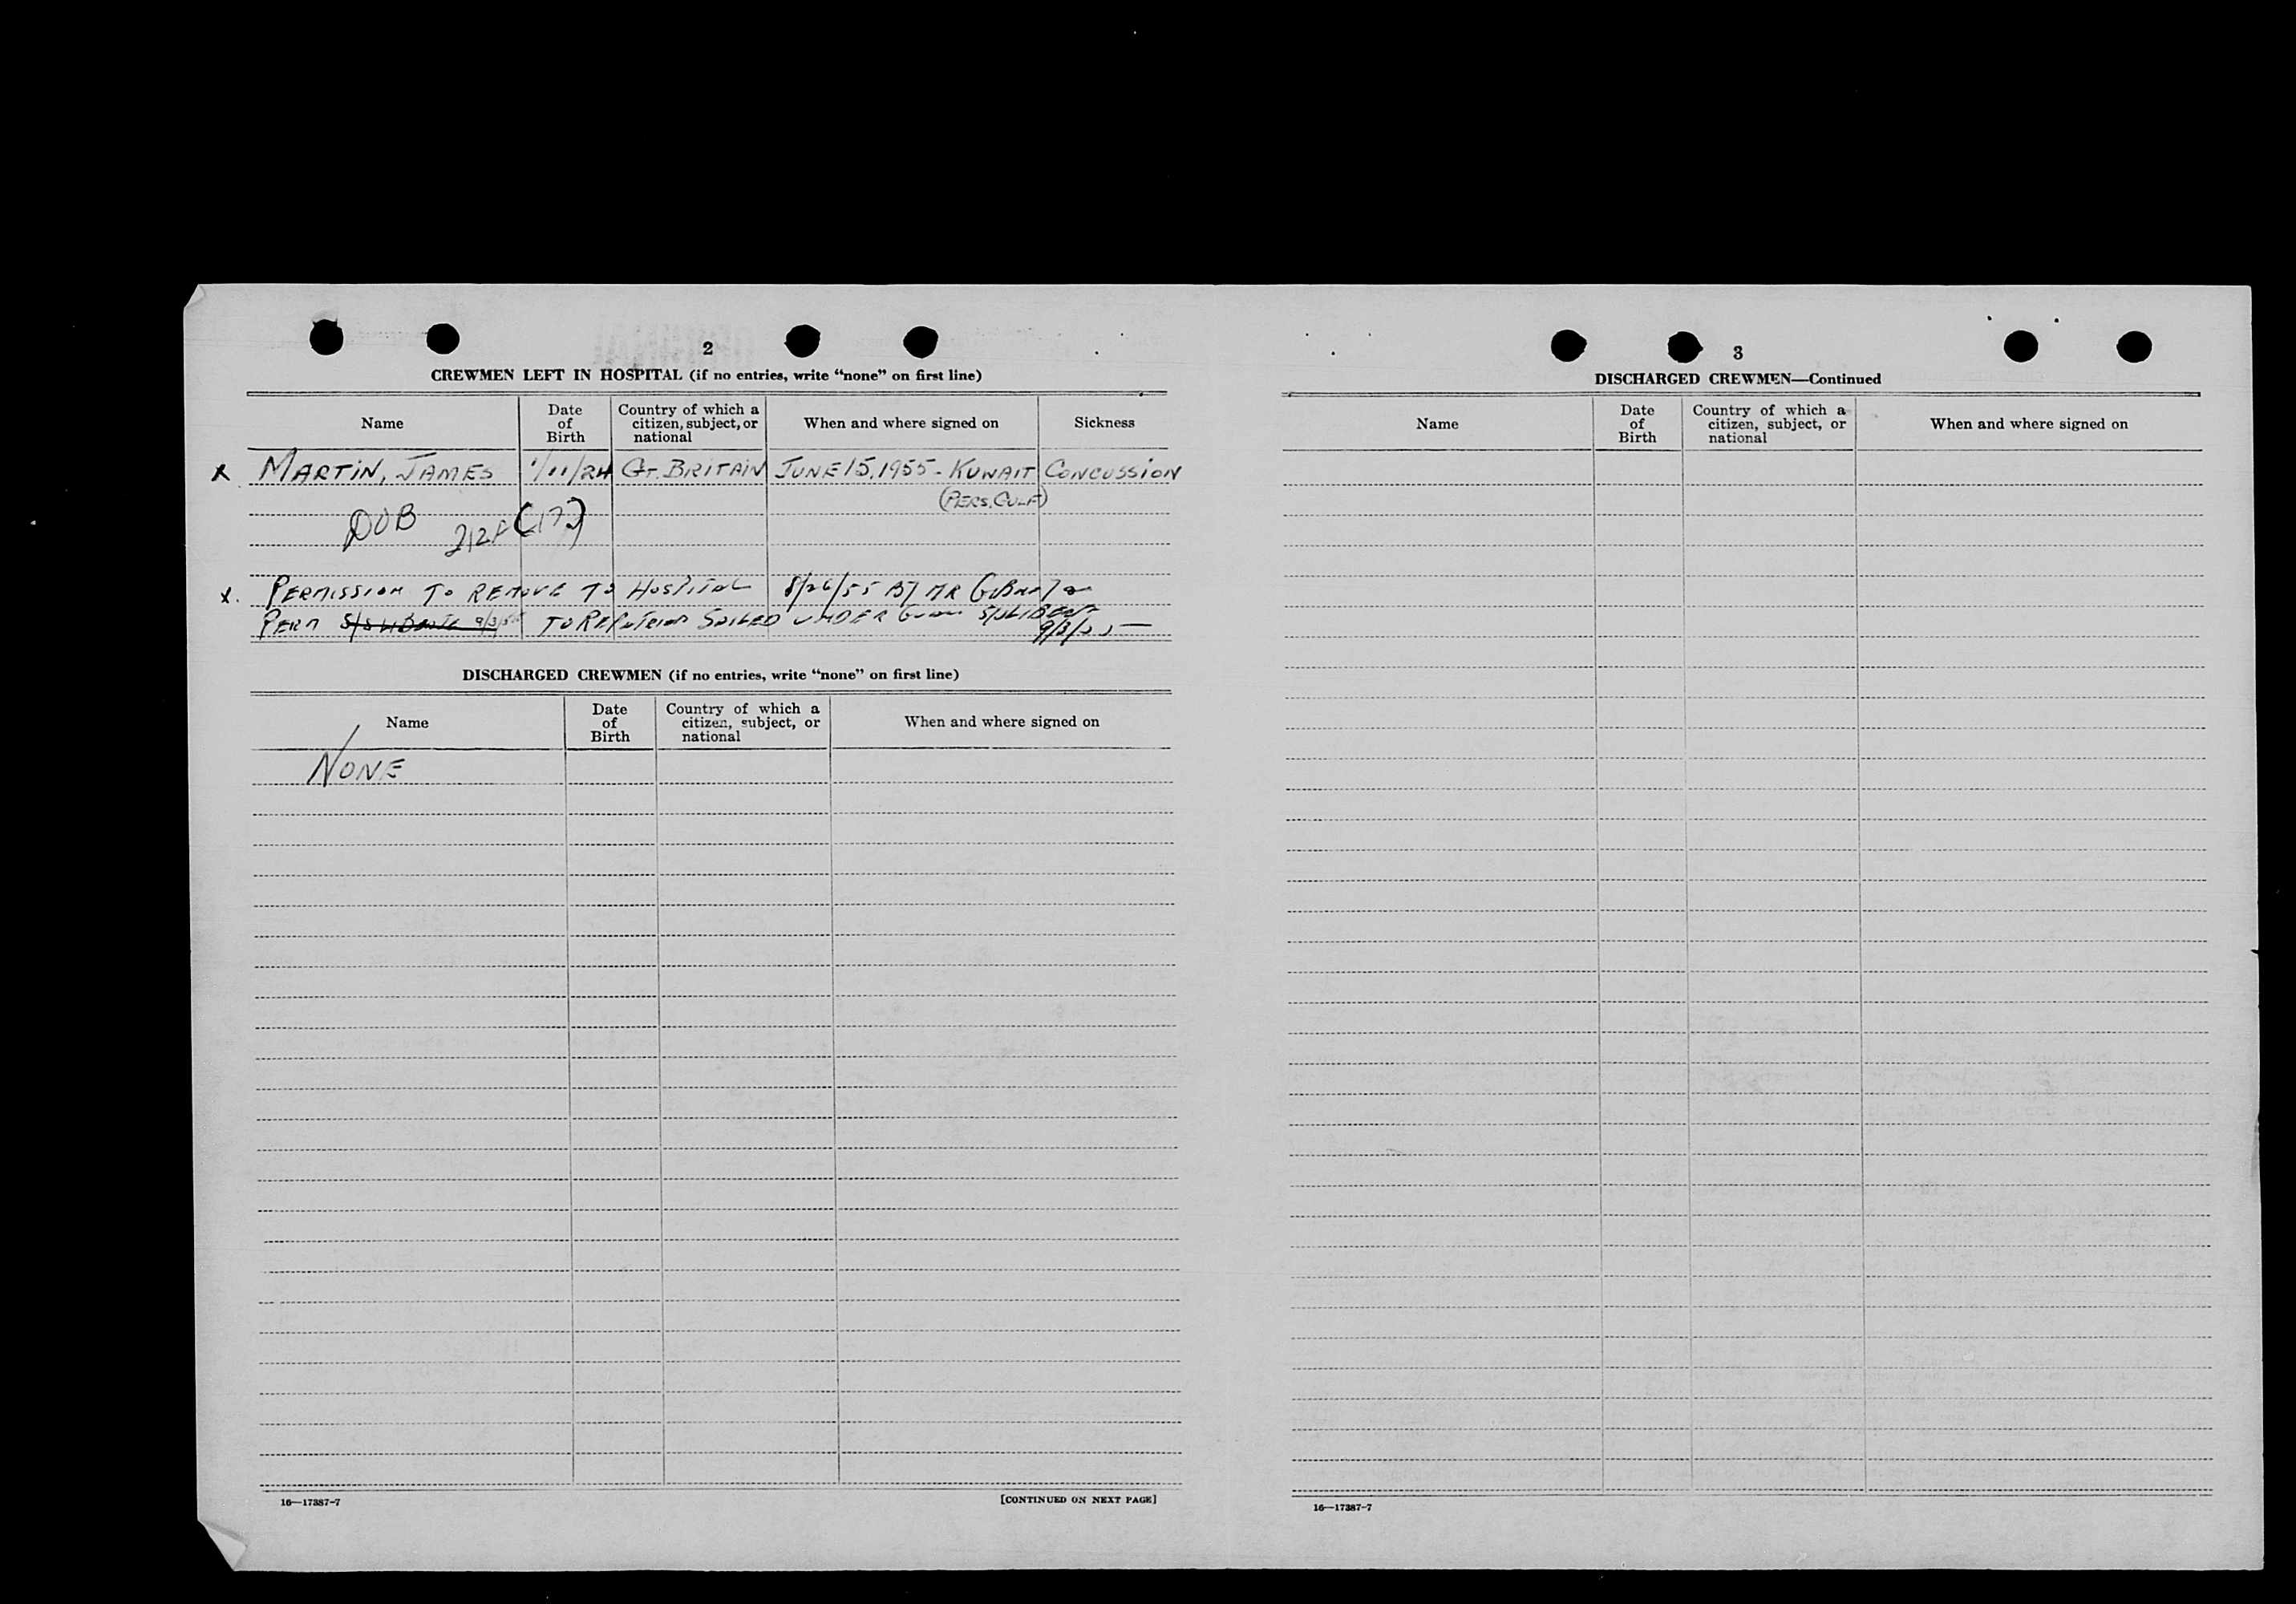 2
CREWMEN LEFT IN HOSPITAL (if no entries, write “none” on first line)
Name
Date of Birth
Country of which a citizen, subject, or national
When and where signed on
Sickness
x MARTIN, JAMES 1/11/24 GT. BRITAIN JUNE 15, 1955 - KUWAIT CONCUSSION
(PERS. GULF)
DOB
x. PERMISSION TO REMOVE TO HOSPITAL 8/26/55 BY MR
PERM S/S 9/3/55 TO SAILED UNDER S/S
9/3/55
DISCHARGED CREWMEN (if no entries, write “none” on first line)
Name
Date of Birth
Country of which a citizen, subject, or national
When and where signed on
NONE
16—17387-7
[CONTINUED ON NEXT PAGE]
3
DISCHARGED CREWMEN—Continued
Name
Date of Birth
Country of which a citizen, subject, or national
When and where signed on
16—17387-7